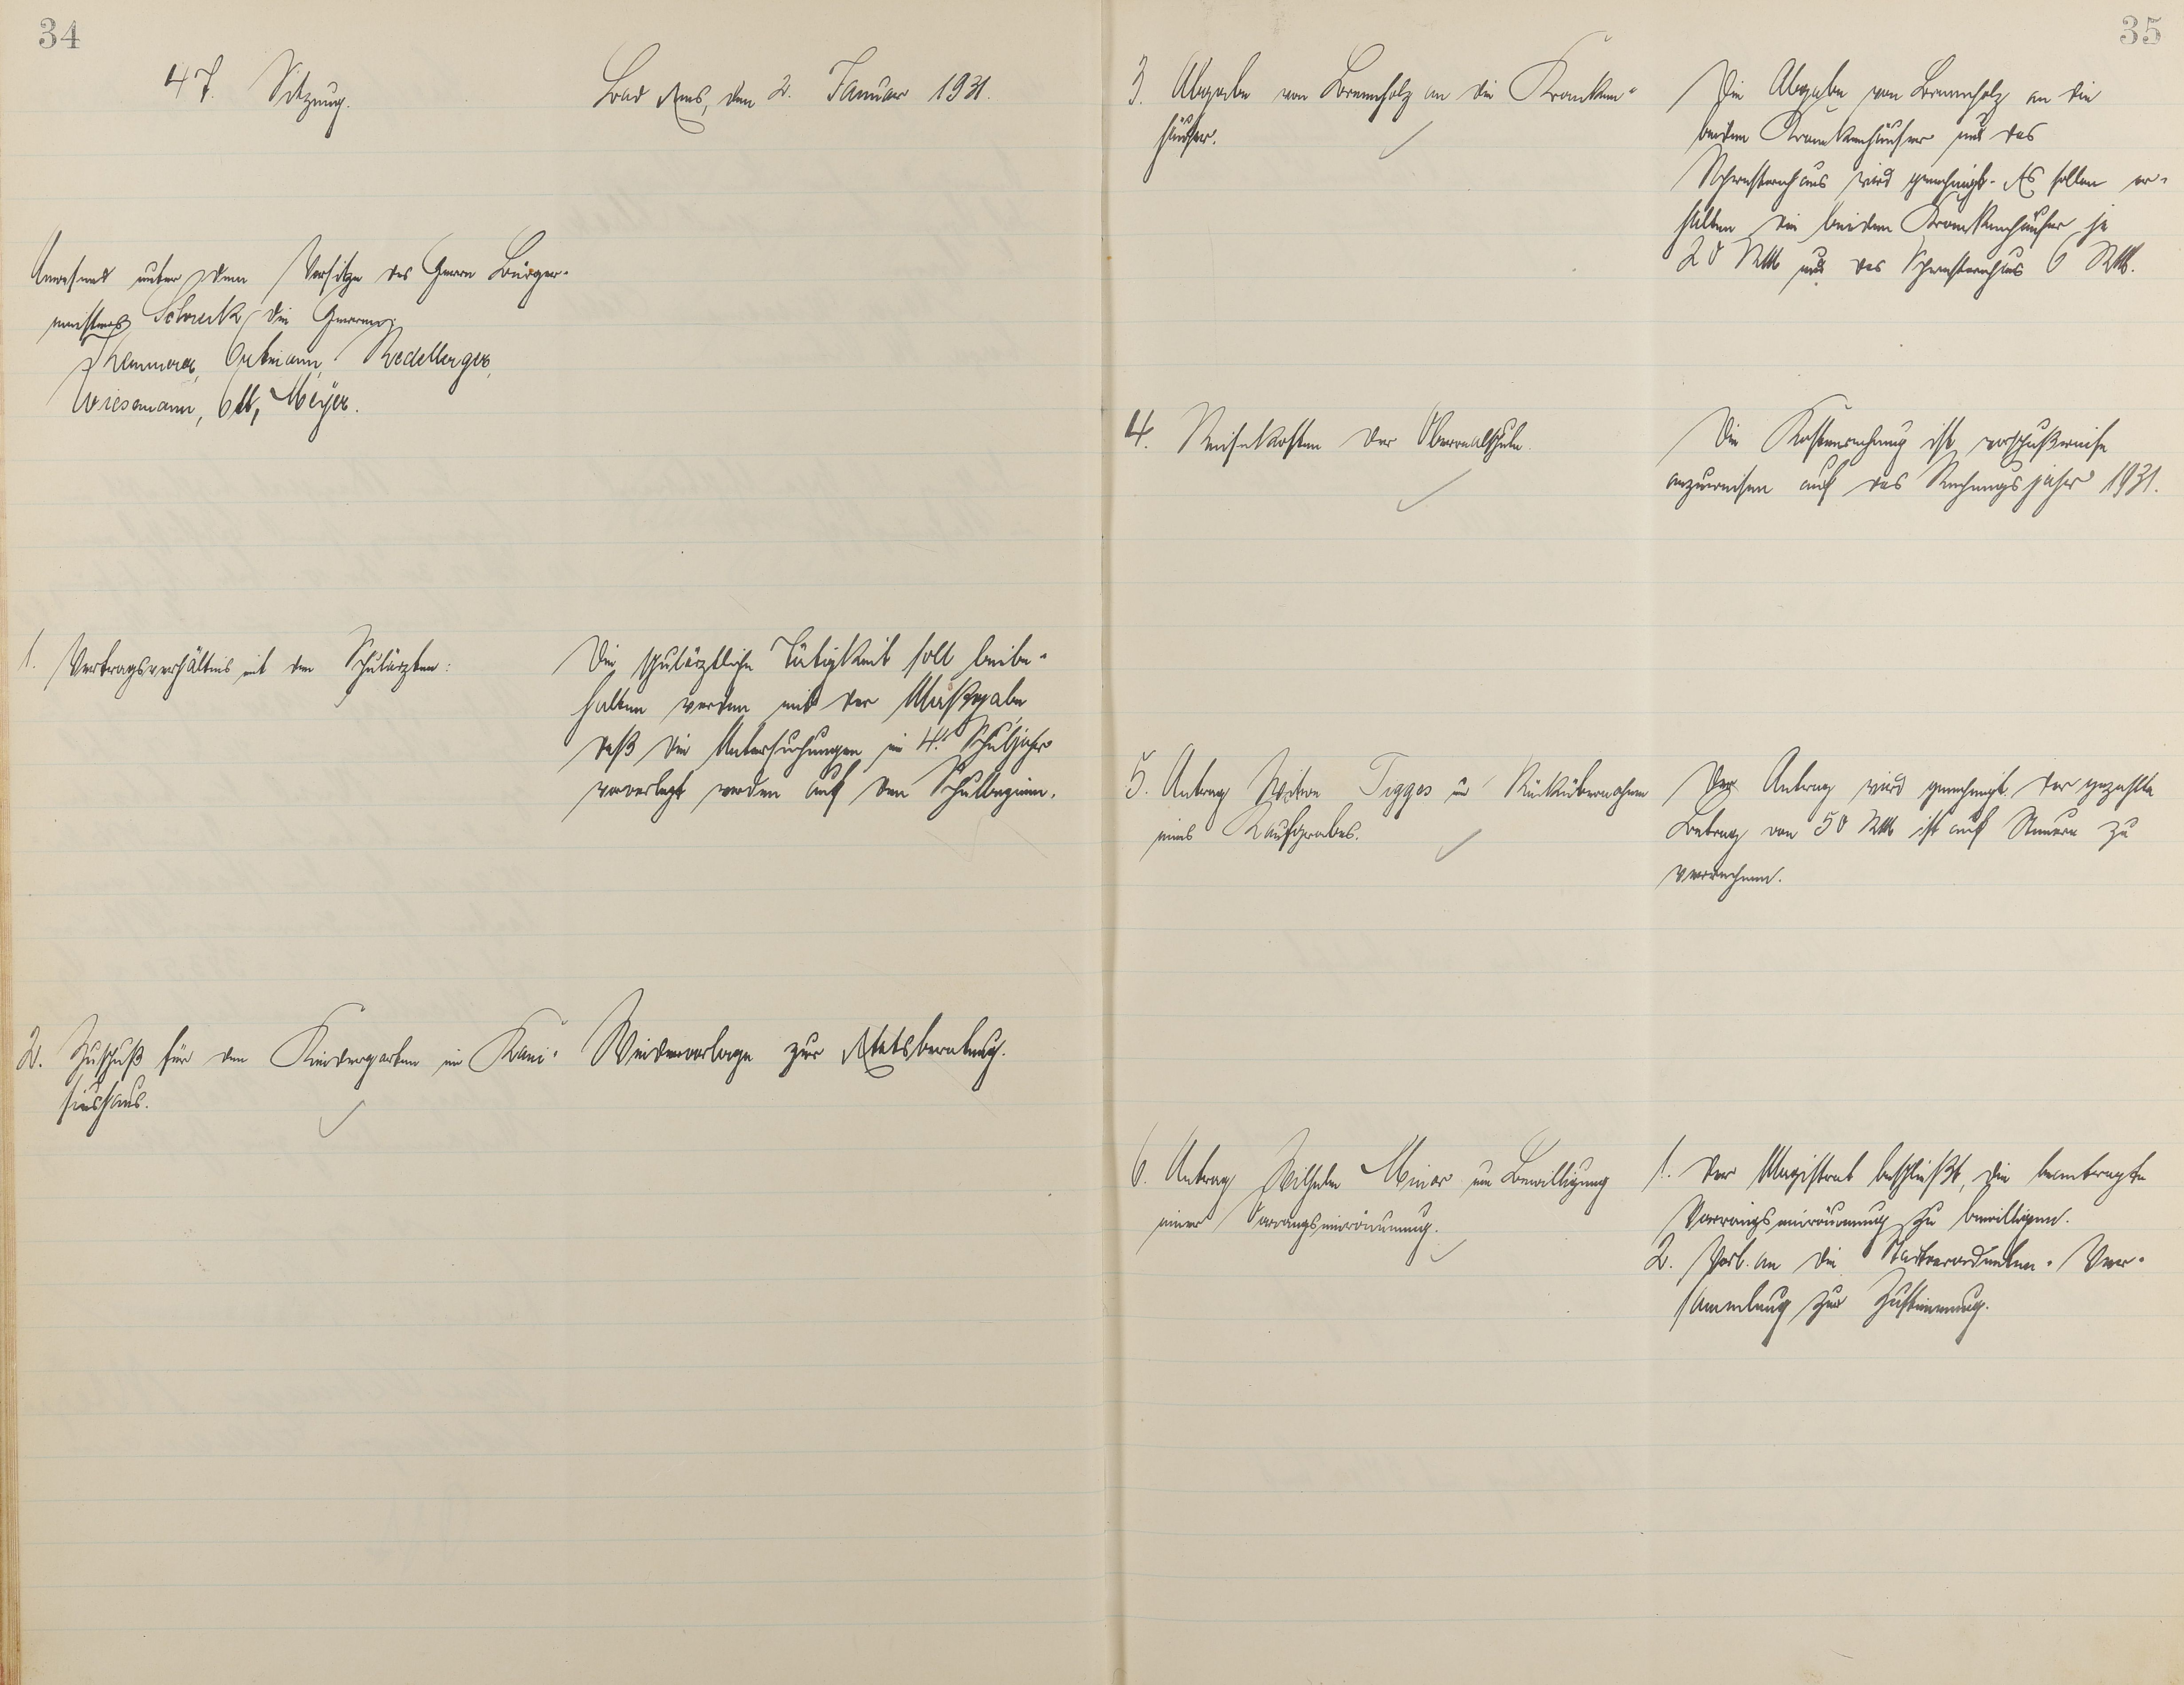 34
47. Sitzung.
Bad Ems, den 2. Januar 1931.
Anwesend unter dem Vorsitze des Herrn Bürger-
meisters Schreck die Herren:
Ortmann,
Wiesemann, Ott, Meyer.
1. Vertragsverhältnis mit den Schulärzten:
Die schulärztliche Tätigkeit soll beibe-
halten werden mit der Maßgabe
daß die Untersuchungen im 4. Schuljahr
vorverlegt werden auf den Schulbeginn.
2. Zuschuß für den Kindergarten im Kani-
siushaus.
Wiedervorlage zur Etatsberatung.
35
3. Abgabe von Brennholz an die Kranken-
häuser.
Die Abgabe von Brennholz an die
beiden Krankenhäuser und das
Schwesternhaus wird genehmigt. Es sollen er-
halten die beiden Krankenhäuser je
20 RM und das Schwesternhaus 6 RM.
4. Reisekosten der Oberrealschule.
Die Kostenrechnung ist vorschußweise
anzuweisen auf das Rechnungsjahr 1931.
5. Antrag Witwe Tigges um Rückübernahme
eines Kaufgrabes.
Der Antrag wird genehmigt. Der gezahlte
Betrag von 50 RM ist auf Steuern zu
verrechnen.
6. Antrag Wilhelm Minor um Bewilligung
einer Vorrangseinräumung.
1. Der Magistrat beschließt, die beantragte
Vorrangseinräumung zu bewilligen.
2. Vorl. an die Stadtverordneten-Ver-
sammlung zur Zustimmung.